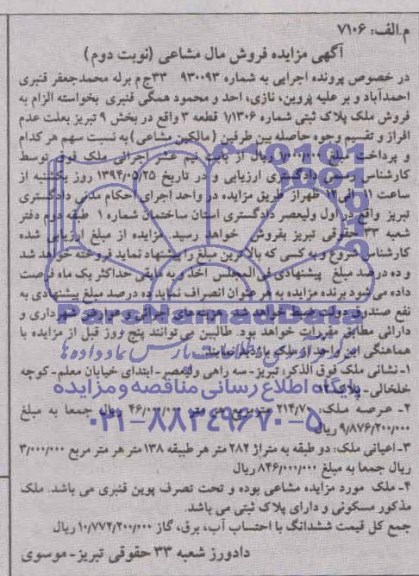 م.الف: ۷۱۰۶
آگهی مزایده فروش مال مشاعی (نوبت دوم)
در خصوص پرونده اجرایی به شماره ۹۳۰۰۹۳ ۳۳ج م برله محمدجعفر قنبری
احمدآباد و بر علیه پروین، نازی، احد و محمود همگی قنبری بخواسته الزام به
فروش ملک پلاک ثبتی شماره ۱/۱۳۰۶ قطعه ۳ واقع در بخش ۹ تبریز بعلت عدم
افراز و تقسیم وجوه حاصله بین طرفین (مالکین مشاعی) به نسبت سهم هر کدام
و پرداخت مبلغ ریال از بابت نیم عشر اجرائی ملک فوق توسط
کارشناس رسمی دادگستری ارزیابی و در تاریخ ۱۳۹۴/۰۵/۲۵ روز یکشنبه از
ساعت ۱۱ الی ۱۲ ظهر از طریق مزایده در واحد اجرای احکام مدنی دادگستری
تبریز واقع در اول ولیعصر دادگستری استان ساختمان شماره ۱ طبقه دوم دفتر
شعبه ۳۳ حقوقی تبریز بفروش خواهد رسید. مزایده از مبلغ ارزیابی شده
کارشناس شروع و به کسی که بالاترین مبلغ را پیشنهاد نماید فروخته خواهد شد
و ده درصد مبلغ پیشنهادی فی المجلس اخذ و به مابقی حداکثر یک ماه فرصت
داده می شود برنده مزایده به هر عنوان انصراف نماید ده درصد مبلغ پیشنهادی به
نفع صندوق دولت ضبط خواهد شد. هزینه های اجرائی و و
دارائی مطابق مقررات خواهد بود. طالبین می توانند پنج روز قبل از مزایده با
هماهنگی این واحد از ملک بازدید نمایند.
۱- نشانی ملک فوق الذکر: تبریز- سه راهی ولیعصر- ابتدای خیابان معلم- کوچه
خلخالی- پلاک
۲- عرصه ملک: ۲۱۴/۷۰ مترمربع هر متر ۴۶/۰۰۰/۰۰۰ ریال جمعا به مبلغ
۹/۸۷۶/۲۰۰/۰۰۰ ریال
۳- اعیانی ملک: دو طبقه به متراژ ۲۸۲ متر هر طبقه ۱۳۸ متر هر متر مربع ۳/۰۰۰/۰۰۰
ریال جمعا به مبلغ ۸۴۶/۰۰۰/۰۰۰ ریال
۴- ملک مورد مزایده مشاعی بوده و تحت تصرف پوین قنبری می باشد. ملک
مذکور مسکونی و دارای پلاک ثبتی می باشد.
جمع کل قیمت ششدانگ با احتساب آب، برق، گاز ۱۰/۷۷۲/۲۰۰/۰۰۰ ریال
دادورز شعبه ۳۳ حقوقی تبریز- موسوی
پایگاه اطلاع رسانی مناقصه و مزایده
۰۲۱-۸۸۳۴۹۶۷۰-۵